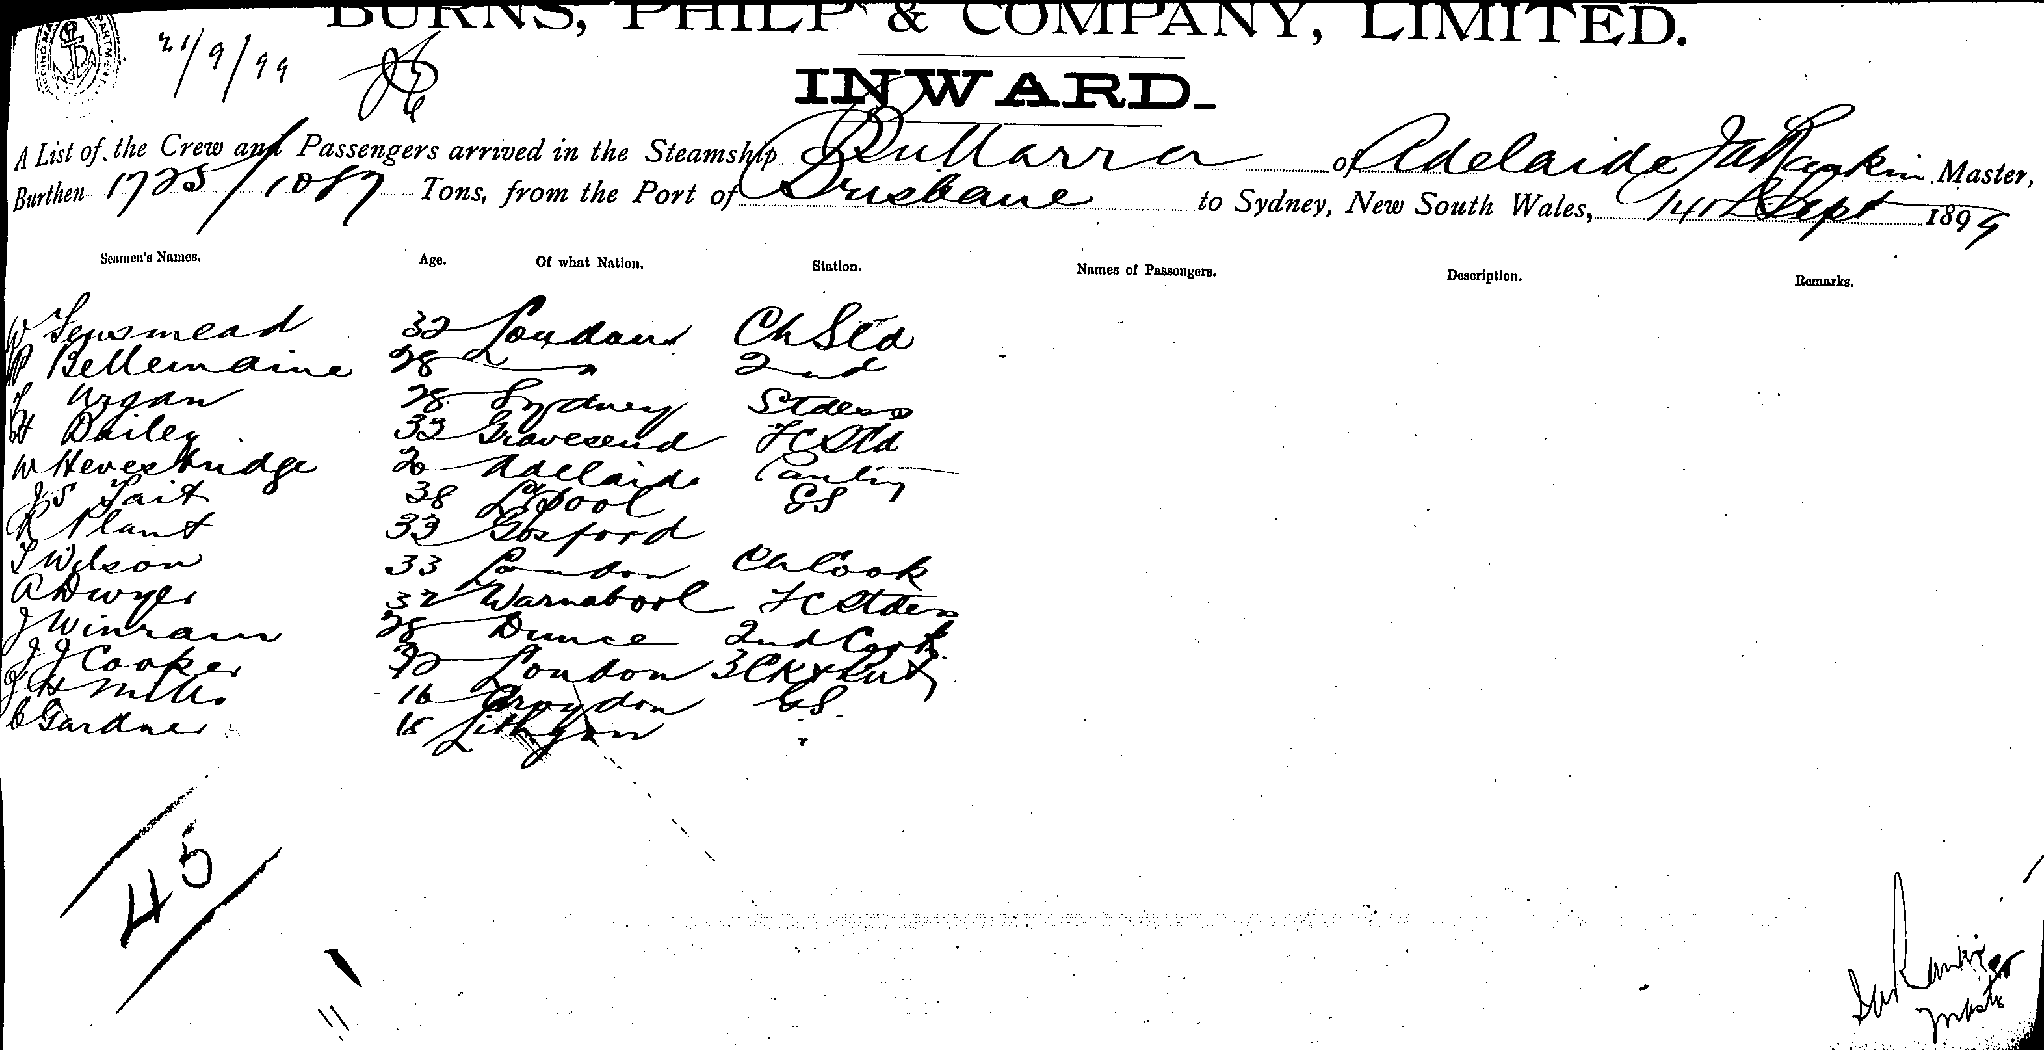 BURNS, PHILP & COMPANY, LIMITED.
21/9/99
INWARD.
A List of the Crew and Passengers arrived in the Steamship Buttarra of Adelaide J A Rankin Master,
Burthen 1725/1087 Tons, from the Port of Brisbane to Sydney, New South Wales, 14th Sept 1899
Seamen's Names. Age. Of what Nation. Station. Names of Passengers. Description. Remarks.
W 32 London Ch Std
Bellemaine 28 " 2nd
Organ 28 Sydney Stdess
H Bailey 33 Gravesend FC Std
W Hevestridge 20 Adelaide Pantry
J S Tait 38 L'pool GS
R Plant 33 Gosford
T Wilson 33 London Ch Cook
A Dwyer 32 Warnabool FC Stdess
J Winram 28 Dunce 2nd Cook
J J Cooker London 3 CK &
J H Mills 16 Croydon GS
C Gardner 18 Lithgow "
45
J A Rankin
Master